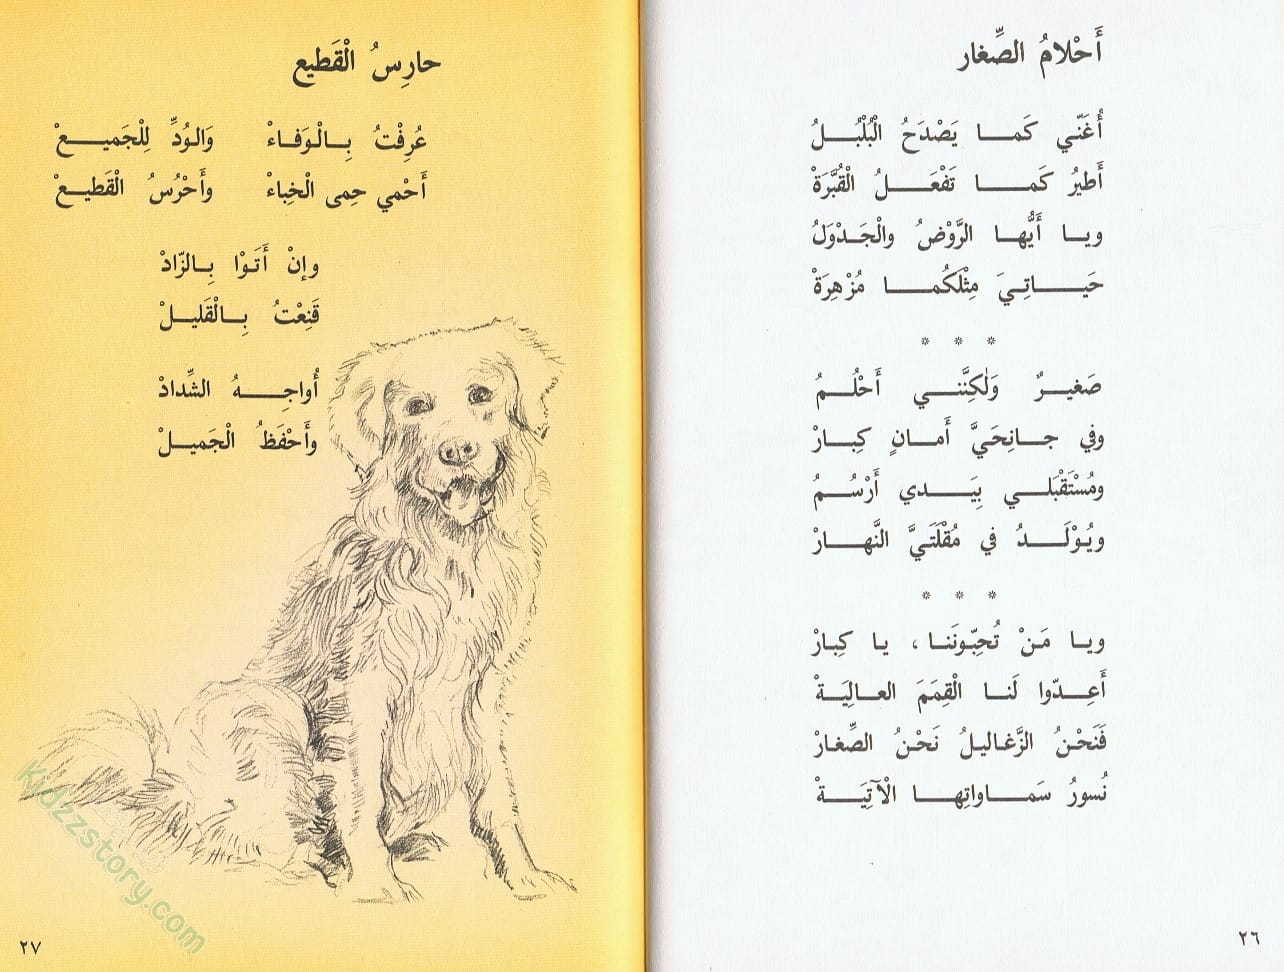 أَحْلامُ الصِّغار
أُغَنّي كَمـا يَصْدَحُ الْبُلْبُـلُ
أَطيرُ كَمـا تَفْعَـلُ الْقُبَّرَةْ
ويـا أَيُّهـا الرَّوْضُ والْجَـدْوَلُ
حَيـاتِـيَ مِثْلَكُمـا مُزْهِرَةْ
* * *
صَغيـرٌ وَلٰكِنَّنـي أَحْلُـمُ
وفي جـانِحَيَّ أَمـانٍ كِبـارْ
ومُسْتَقْبَلـي بِيَـدي أَرْسُـمُ
ويُوْلَـدُ في مُقْلَتَـيَّ النَّهـارْ
* * *
ويـا مَـنْ تُحِبّـونَنـا، يـا كِبـارْ
أَعِـدّوا لَنـا الْقِمَمَ العـالِيَـةْ
فَنَحْـنُ الزَّغـاليـلُ نَحْـنُ الصِّغارْ
نُسورُ سَمـاواتِهـا الْآتِيَـةْ
٢٦
حارِسُ الْقَطيع
عُرِفْتُ بِـالْوَفـاءْ وَالـوُدِّ لِلْجَميـعْ
أَحْمي حِمى الْخِباءْ وأَحْرُسُ الْقَطيـعْ
وإنْ أَتَـوْا بِـالزّادْ
قَنِعْتُ بِـالْقَليـلْ
أُواجِـهُ الشِّدادْ
وأَحْفَظُ الْجَميـلْ
٢٧
Kidzzstory.com